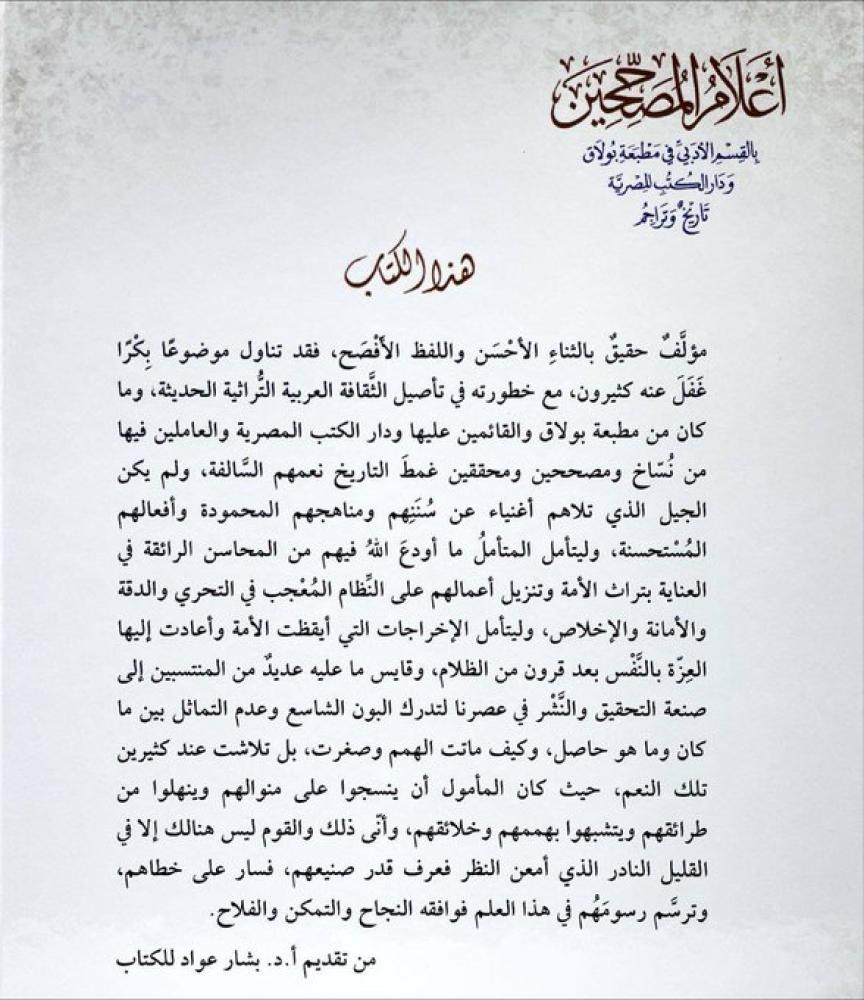 أَعْلَامُ المُصَحِّحِينَ
بِالقِسْمِ الأَدَبِيِّ فِي مَطْبَعَةِ بُولَاق
وَدَارِ الكُتُبِ المِصْرِيَّة
تَارِيخٌ وَتَرَاجِمُ
هذا الكتاب
مؤلَّفٌ حقيقٌ بالثناءِ الأحْسَن واللفظ الأَفْصَح، فقد تناول موضوعًا بِكْرًا
غَفَلَ عنه كثيرون، مع خطورته في تأصيل الثَّقافة العربية التُّراثية الحديثة، وما
كان من مطبعة بولاق والقائمين عليها ودار الكتب المصرية والعاملين فيها
من نُسّاخ ومصححين ومحققين غمطَ التاريخ نعمهم السَّالفة، ولم يكن
الجيل الذي تلاهم أغنياء عن سُنَنِهم ومناهجهم المحمودة وأفعالهم
المُسْتحسنة، وليتأمل المتأملُ ما أودعَ اللهُ فيهم من المحاسن الرائقة في
العناية بتراث الأمة وتنزيل أعمالهم على النِّظام المُعْجب في التحري والدقة
والأمانة والإخلاص، وليتأمل الإخراجات التي أيقظت الأمة وأعادت إليها
العِزّة بالنَّفْس بعد قرون من الظلام، وقايس ما عليه عديدٌ من المنتسبين إلى
صنعة التحقيق والنَّشْر في عصرنا لتدرك البون الشاسع وعدم التماثل بين ما
كان وما هو حاصل، وكيف ماتت الهمم وصغرت، بل تلاشت عند كثيرين
تلك النعم، حيث كان المأمول أن ينسجوا على منوالهم وينهلوا من
طرائقهم ويتشبهوا بهممهم وخلائقهم، وأنّى ذلك والقوم ليس هنالك إلا في
القليل النادر الذي أمعن النظر فعرف قدر صنيعهم، فسار على خطاهم،
وترسَّم رسومَهُم في هذا العلم فوافقه النجاح والتمكن والفلاح.
من تقديم أ.د. بشار عواد للكتاب